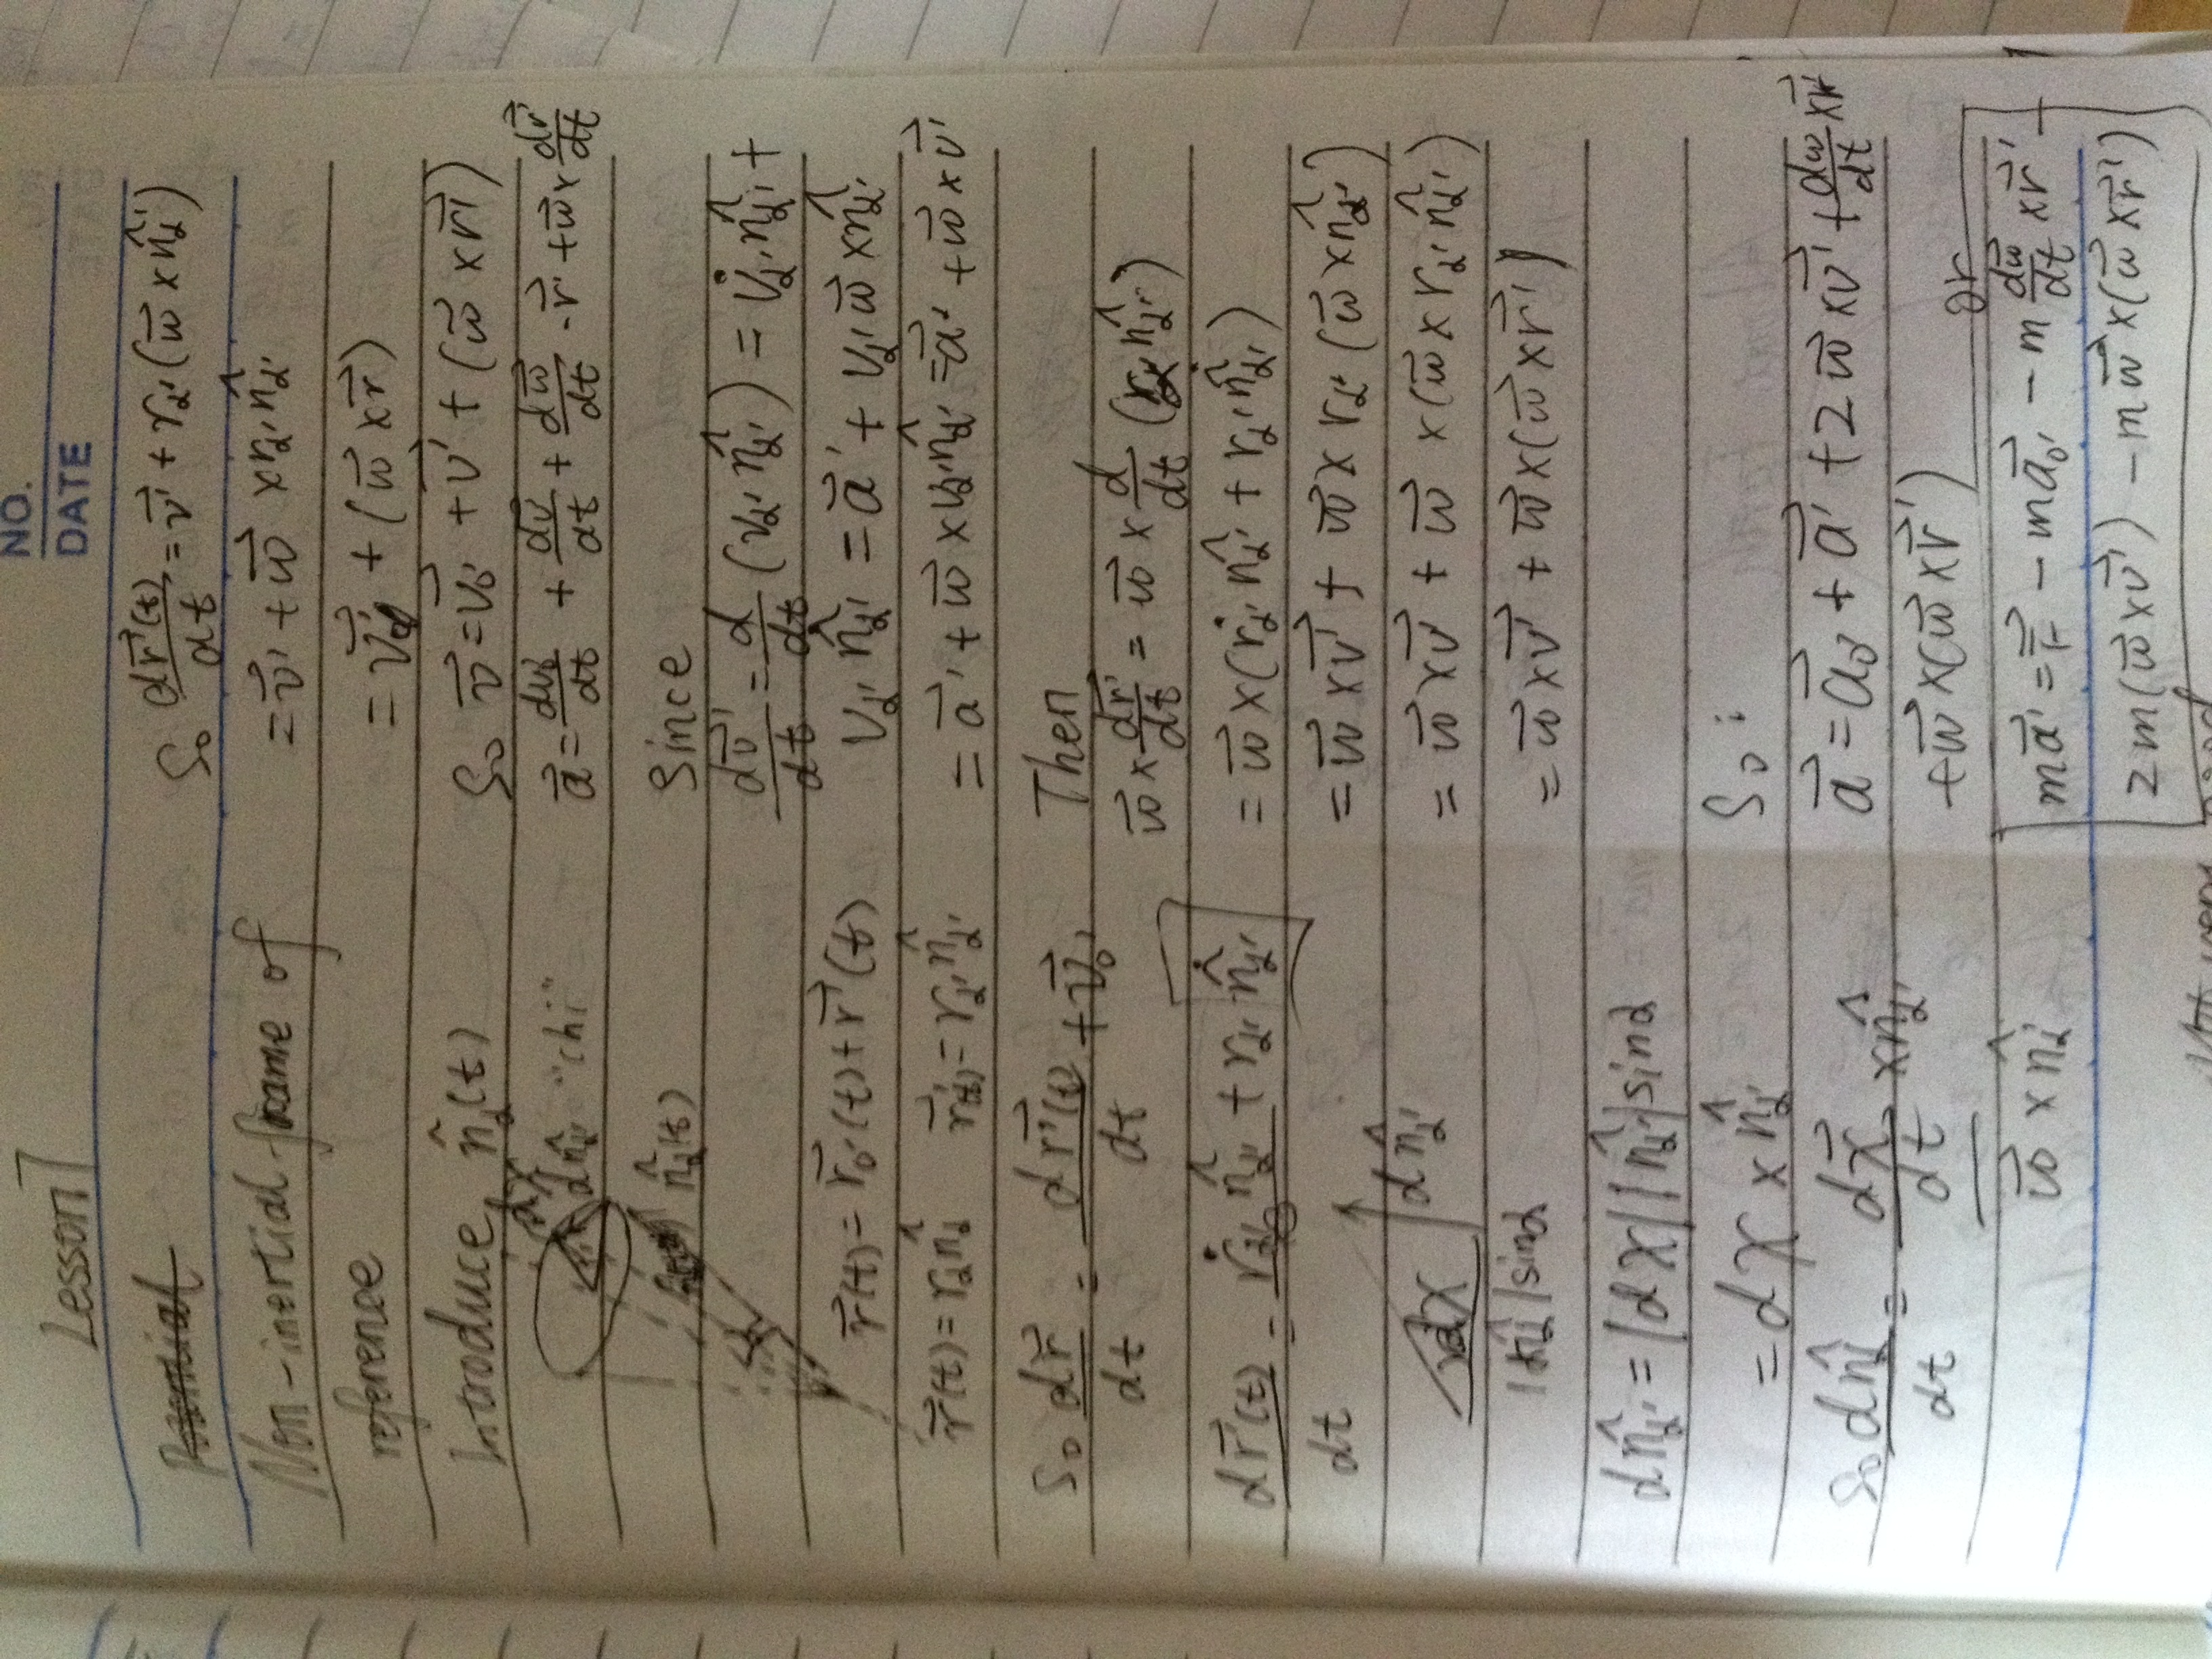 NO.
DATE
Lesson 7
Non-inertial frame of
reference
Introduce n̂_α(t)
dχ
dn̂_α' "chi"
n̂_α'(t)
r⃗(t) = r⃗_0'(t) + r⃗'(t)
r⃗(t) = r_α n̂_α r⃗'(t) = r_α' n̂_α'
So dr⃗/dt = dr⃗'(t)/dt + v⃗_0'
dr⃗'(t)/dt = ṙ_α' n̂_α' + r_α' n̂̇_α'
dχ dn̂_α'
|n̂_α'| sinα
dn̂_α' = |dχ||n̂_α'| sinα
= dχ × n̂_α'
So dn̂_α'/dt = dχ⃗/dt × n̂_α'
ω⃗ × n̂_α'
So dr⃗'(t)/dt = v⃗' + r_α' (ω⃗ × n̂_α')
= v⃗' + ω⃗ × r_α' n̂_α'
= v⃗' + (ω⃗ × r⃗)
So v⃗ = v⃗_0' + v⃗' + (ω⃗ × r⃗')
a⃗ = dv_0'/dt + dv⃗/dt + dω⃗/dt - r⃗' + ω⃗ × dr⃗'/dt
Since
dv⃗'/dt = d/dt (v_α' n̂_α') = v̇_α' n̂_α' +
v_α' n̂̇_α' = a⃗' + v_α' ω⃗ × n̂_α'
= a⃗' + ω⃗ × v_α' n̂_α' = a⃗' + ω⃗ × v⃗'
Then
ω⃗ × dr⃗'/dt = ω⃗ × d/dt (r_α' n̂_α')
= ω⃗ × (ṙ_α' n̂_α' + r_α' n̂̇_α')
= ω⃗ × v⃗' + ω⃗ × r_α' (ω⃗ × n̂_α')
= ω⃗ × v⃗' + ω⃗ × (ω⃗ × r_α' n̂_α')
= ω⃗ × v⃗' + ω⃗ × (ω⃗ × r⃗')
So :
a⃗ = a⃗_0' + a⃗' + 2 ω⃗ × v⃗' + dω/dt × r⃗'
+ ω⃗ × (ω⃗ × r⃗')
or
ma⃗' = F⃗ - ma⃗_0' - m dω⃗/dt × r⃗' -
2m(ω⃗ × v⃗') - mω⃗ × (ω⃗ × r⃗')